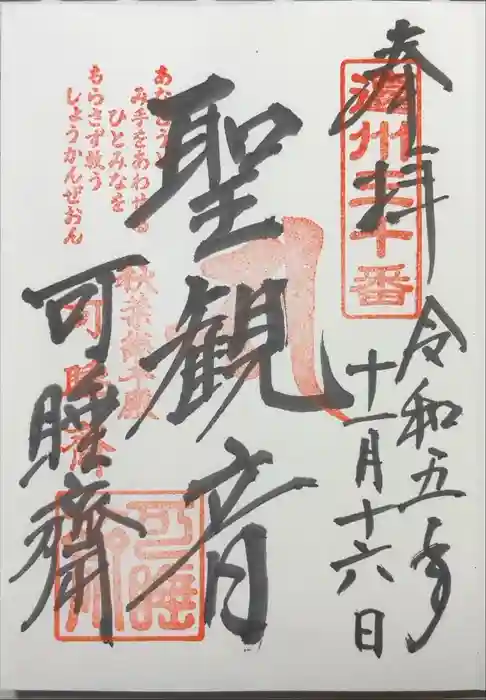 奉拝
遠州三十番
令和五年
十一月十六日
聖観音
あなとうと
み手をあわせる
ひとみなを
もらさず救う
しょうかんぜおん
秋葉總本殿
可睡齋
可睡齋